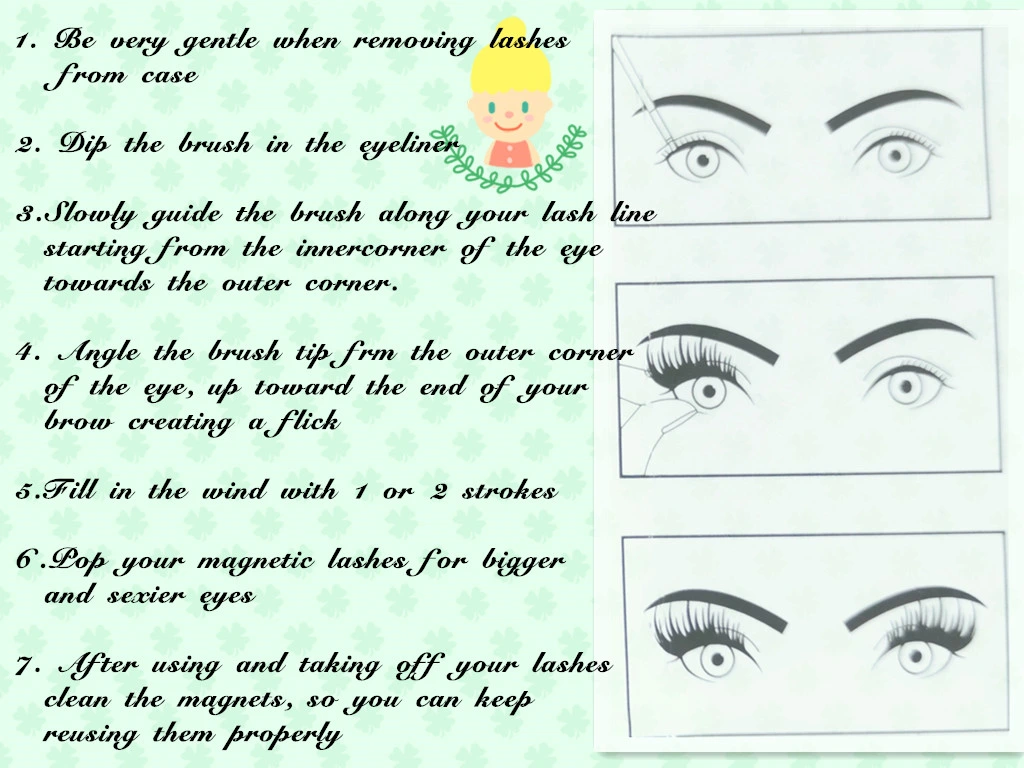 1. Be very gentle when removing lashes
from case
2. Dip the brush in the eyeliner
3.Slowly guide the brush along your lash line
starting from the innercorner of the eye
towards the outer corner.
4. Angle the brush tip frm the outer corner
of the eye, up toward the end of your
brow creating a flick
5.Fill in the wind with 1 or 2 strokes
6.Pop your magnetic lashes for bigger
and sexier eyes
7. After using and taking off your lashes
clean the magnets, so you can keep
reusing them properly